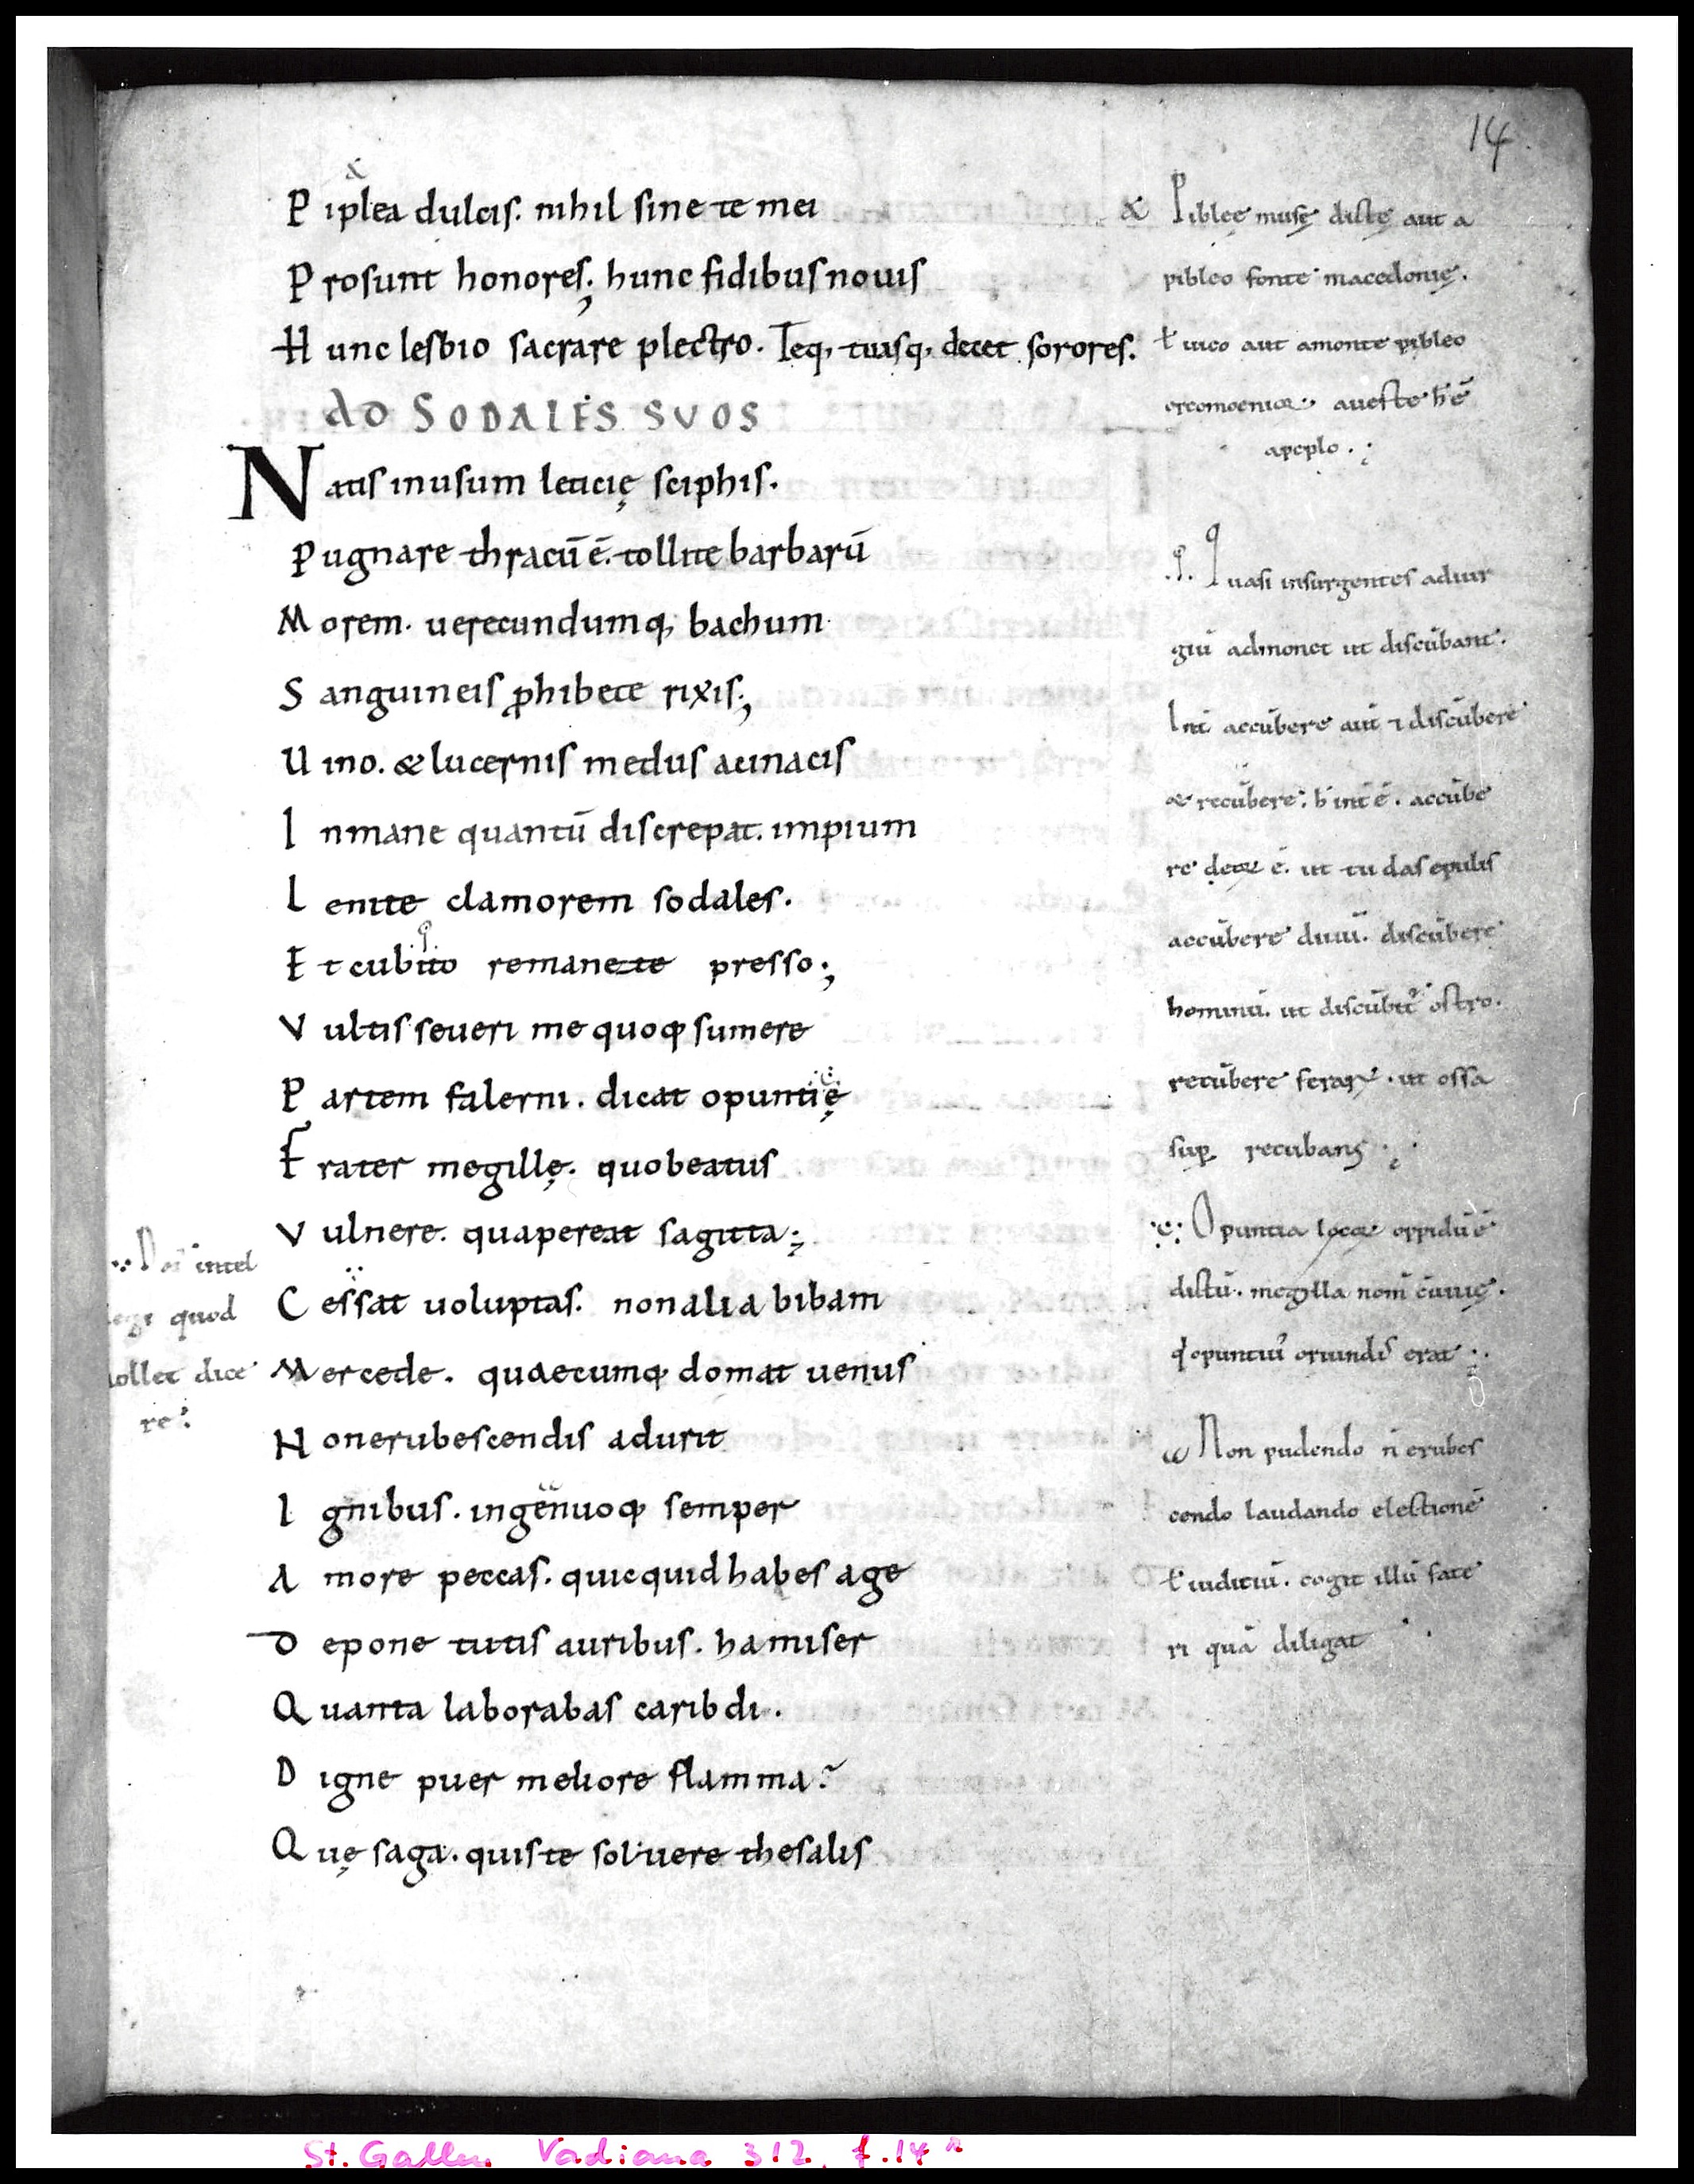 14
P iplea dulcis. nihil sine te mei
P rosunt honores; hunc fidibus nouis
H unc lesbio sacrare plectro. Teq, tuasq, decet sorores.
AD SODALES SVOS
N atis inusum leticię sciphis.
P ugnare thracū ē. tollite barbarū
M orem. uerecundumq, bachum
S anguineis ꝓhibete rixis;
U ino. & lucernis medus acinacis
I nmane quantū discrepat. impium
L enite clamorem sodales.
E t cubito remanete presso;
V ultis seueri me quoꝗ sumere
P artem falerni. dicat opuntię
F rater megillę. quo beatus
V ulnere. qua pereat sagitta;
C essat uoluptas. non alia bibam
M ercede. quaecumꝗ domat uenus
N on erubescendis adurit
I gnibus. ingenuoꝗ semper
A more peccas. quicquid habes age
D epone tutis auribus. ha miser
Q uanta laborabas caribdi.
D igne puer meliore flamma?
Q uę saga. quis te soluere thesalis
& Piblee musę dictę aut a
pibleo fonte macedonię.
ł uico aut a monte pibleo
aueste h ē
apeplo.
Quasi insurgentes ad iur
giū admonet ut discūbant.
Int accūbere aut & discūbere
& recūbere. h int ē. accūbe
re ē. ut tu das epulis
accūbere diuū. discūbere
hominū. ut discūbit ostro.
recūbere ut ossa
suꝑ recubans
Opuntia oppidū ē
dictū. megilla nom̄
opuntiu oriundus erat
Non pudendo n̄ erubes
cendo laudando electionē
ł iuditiū. cogit illū fate
ri quā diligat
intel
quod
nollet dice
re
St. Gallen Vadiana 312, f. 14 r